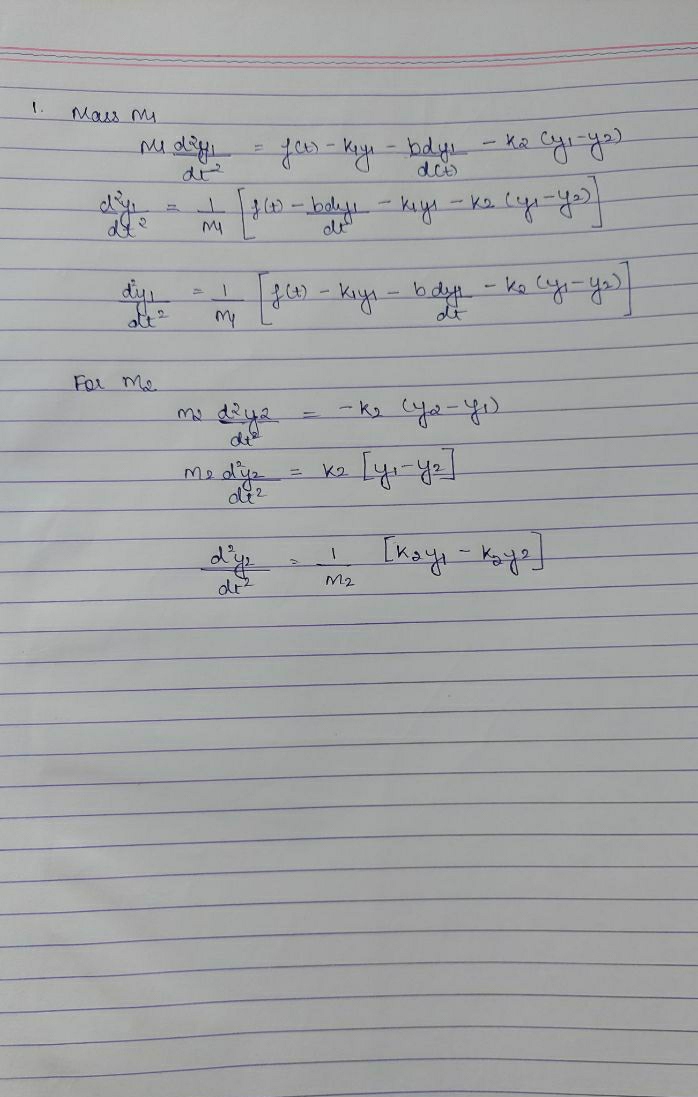 1. Mass M1
M1 d²y1/dt² = f(t) - k1y1 - bdy1/d(t) - k2 (y1-y2)
d²y1/dt² = 1/M1 [f(t) - bdy1/dt - k1y1 - k2 (y1-y2)]
d²y1/dt² = 1/M1 [f(t) - k1y1 - b dy1/dt - k2 (y1-y2)]
For M2
M2 d²y2/dt² = -k2 (y2-y1)
M2 d²y2/dt² = k2 [y1-y2]
d²y2/dt² = 1/M2 [k2y1 - k2y2]